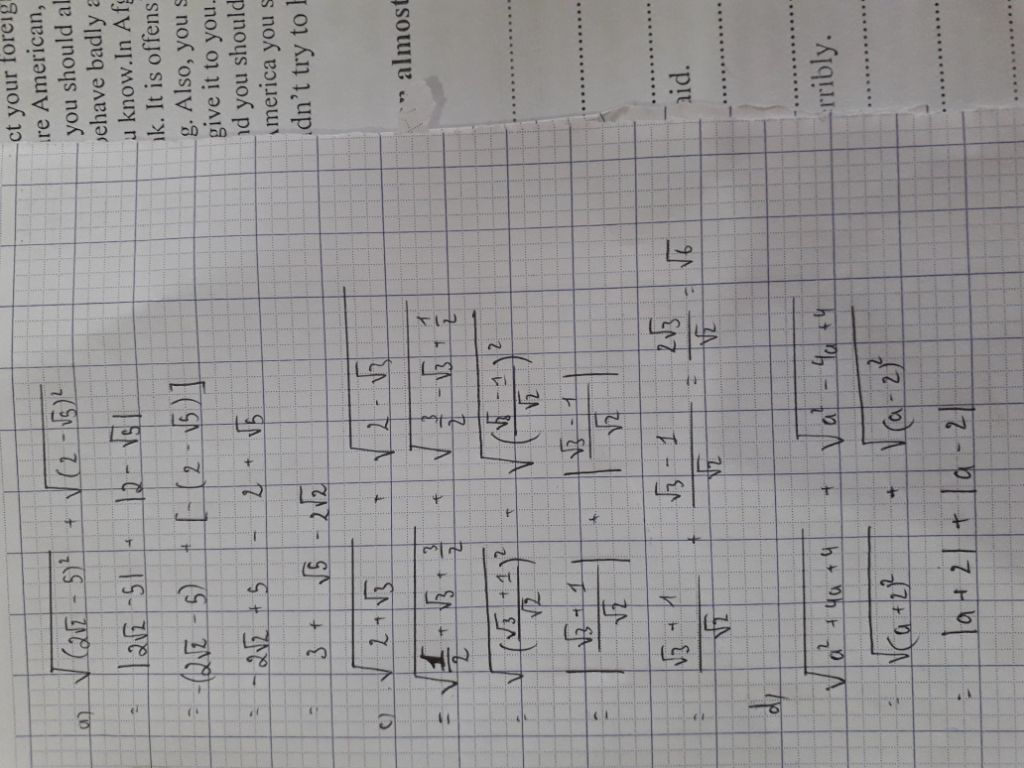 ct your foreig
re American,
you should al
behave badly a
u know.In Afg
nk. It is offens
g. Also, you s
give it to you.
nd you should
America you s
dn't try to l
almost
aid.
rribly.
a) √(2√2 - 5)² + √(2 - √5)²
= |2√2 - 5| + |2 - √5|
= -(2√2 - 5) + [-(2 - √5)]
= -2√2 + 5 - 2 + √5
= 3 + √5 - 2√2
c) √(2 + √3) + √(2 - √3)
= √(1/2 + √3 + 3/2) + √(3/2 - √3 + 1/2)
= √((√3 + 1)/√2)² + √((√3 - 1)/√2)²
= |(√3 + 1)/√2| + |(√3 - 1)/√2|
= (√3 + 1)/√2 + (√3 - 1)/√2 = 2√3/√2 = √6
d) √(a² + 4a + 4) + √(a² - 4a + 4)
= √(a + 2)² + √(a - 2)²
= |a + 2| + |a - 2|